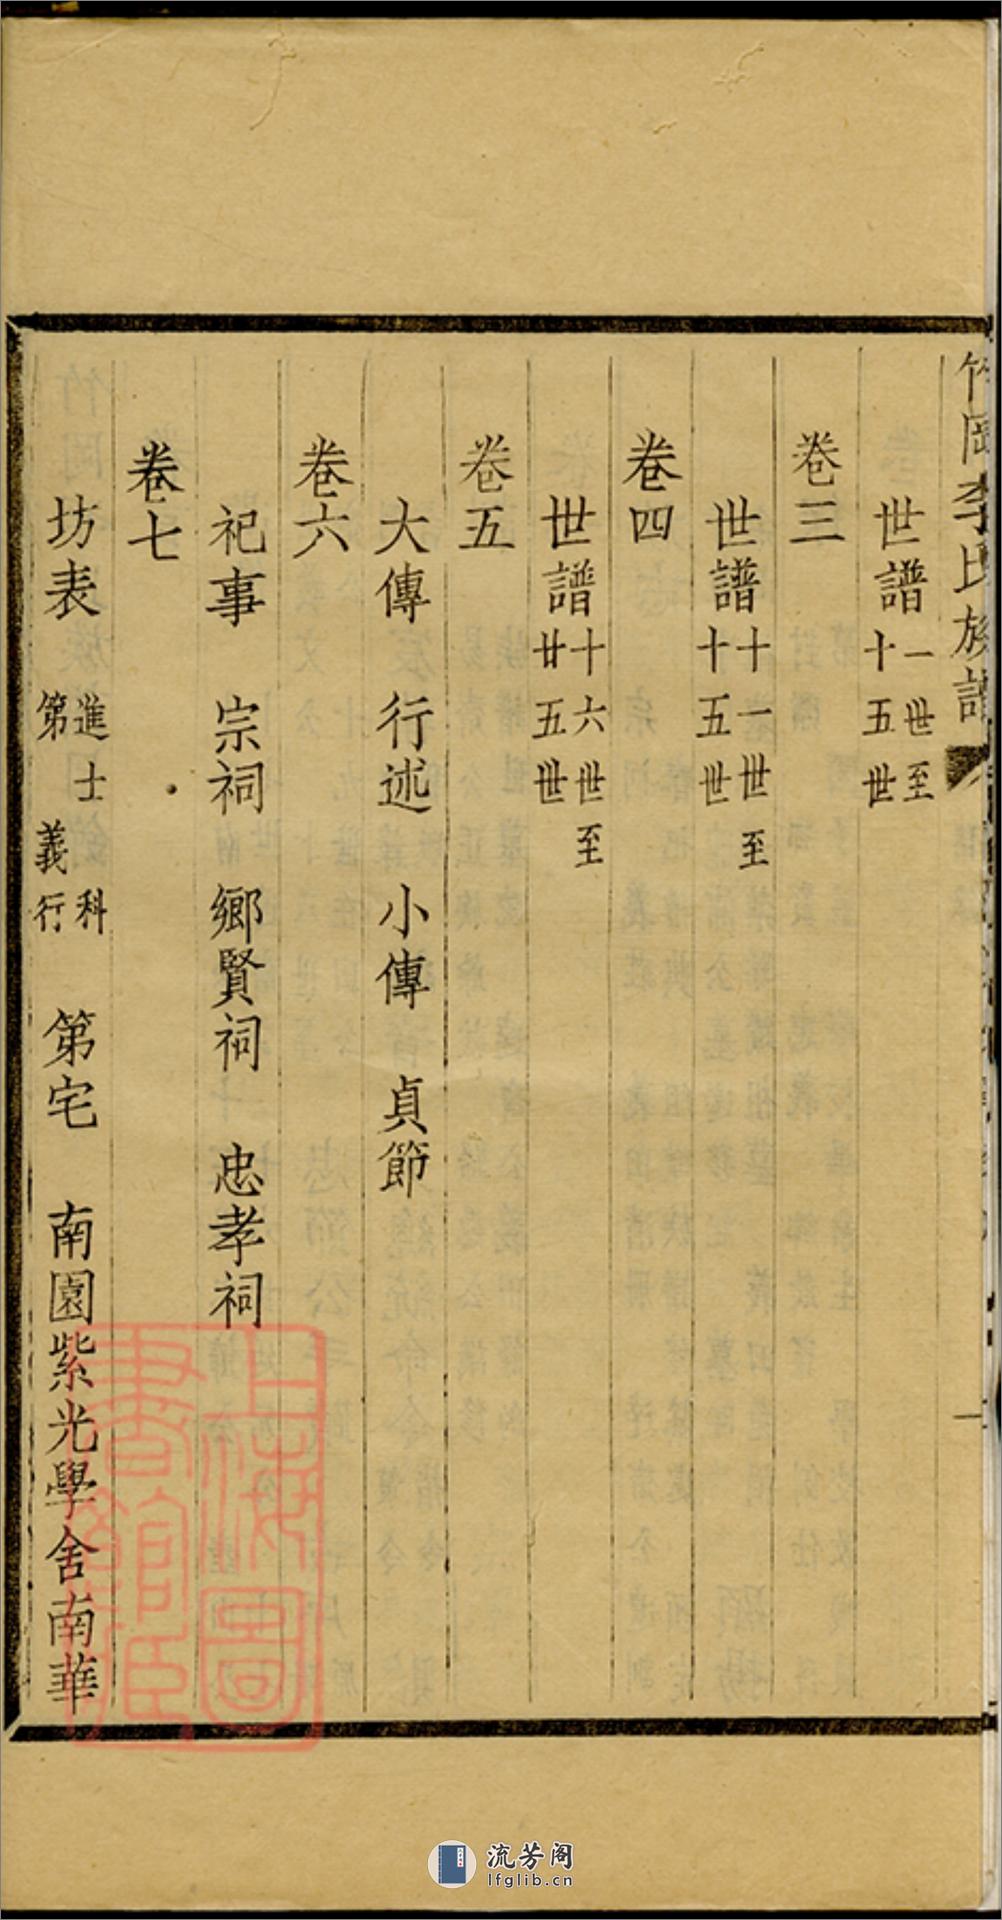 竹岡李氏族譜
世譜一世至十五世
卷三
世譜十一世至十五世
卷四
世譜十六世至廿五世
卷五
大傳 行述 小傳 貞節
卷六
祀事 宗祠 鄉賢祠 忠孝祠
卷七
坊表 進士 科第 義行 第宅 南園紫光學舍南華
上海圖書館藏
流芳阁
lfglib.cn